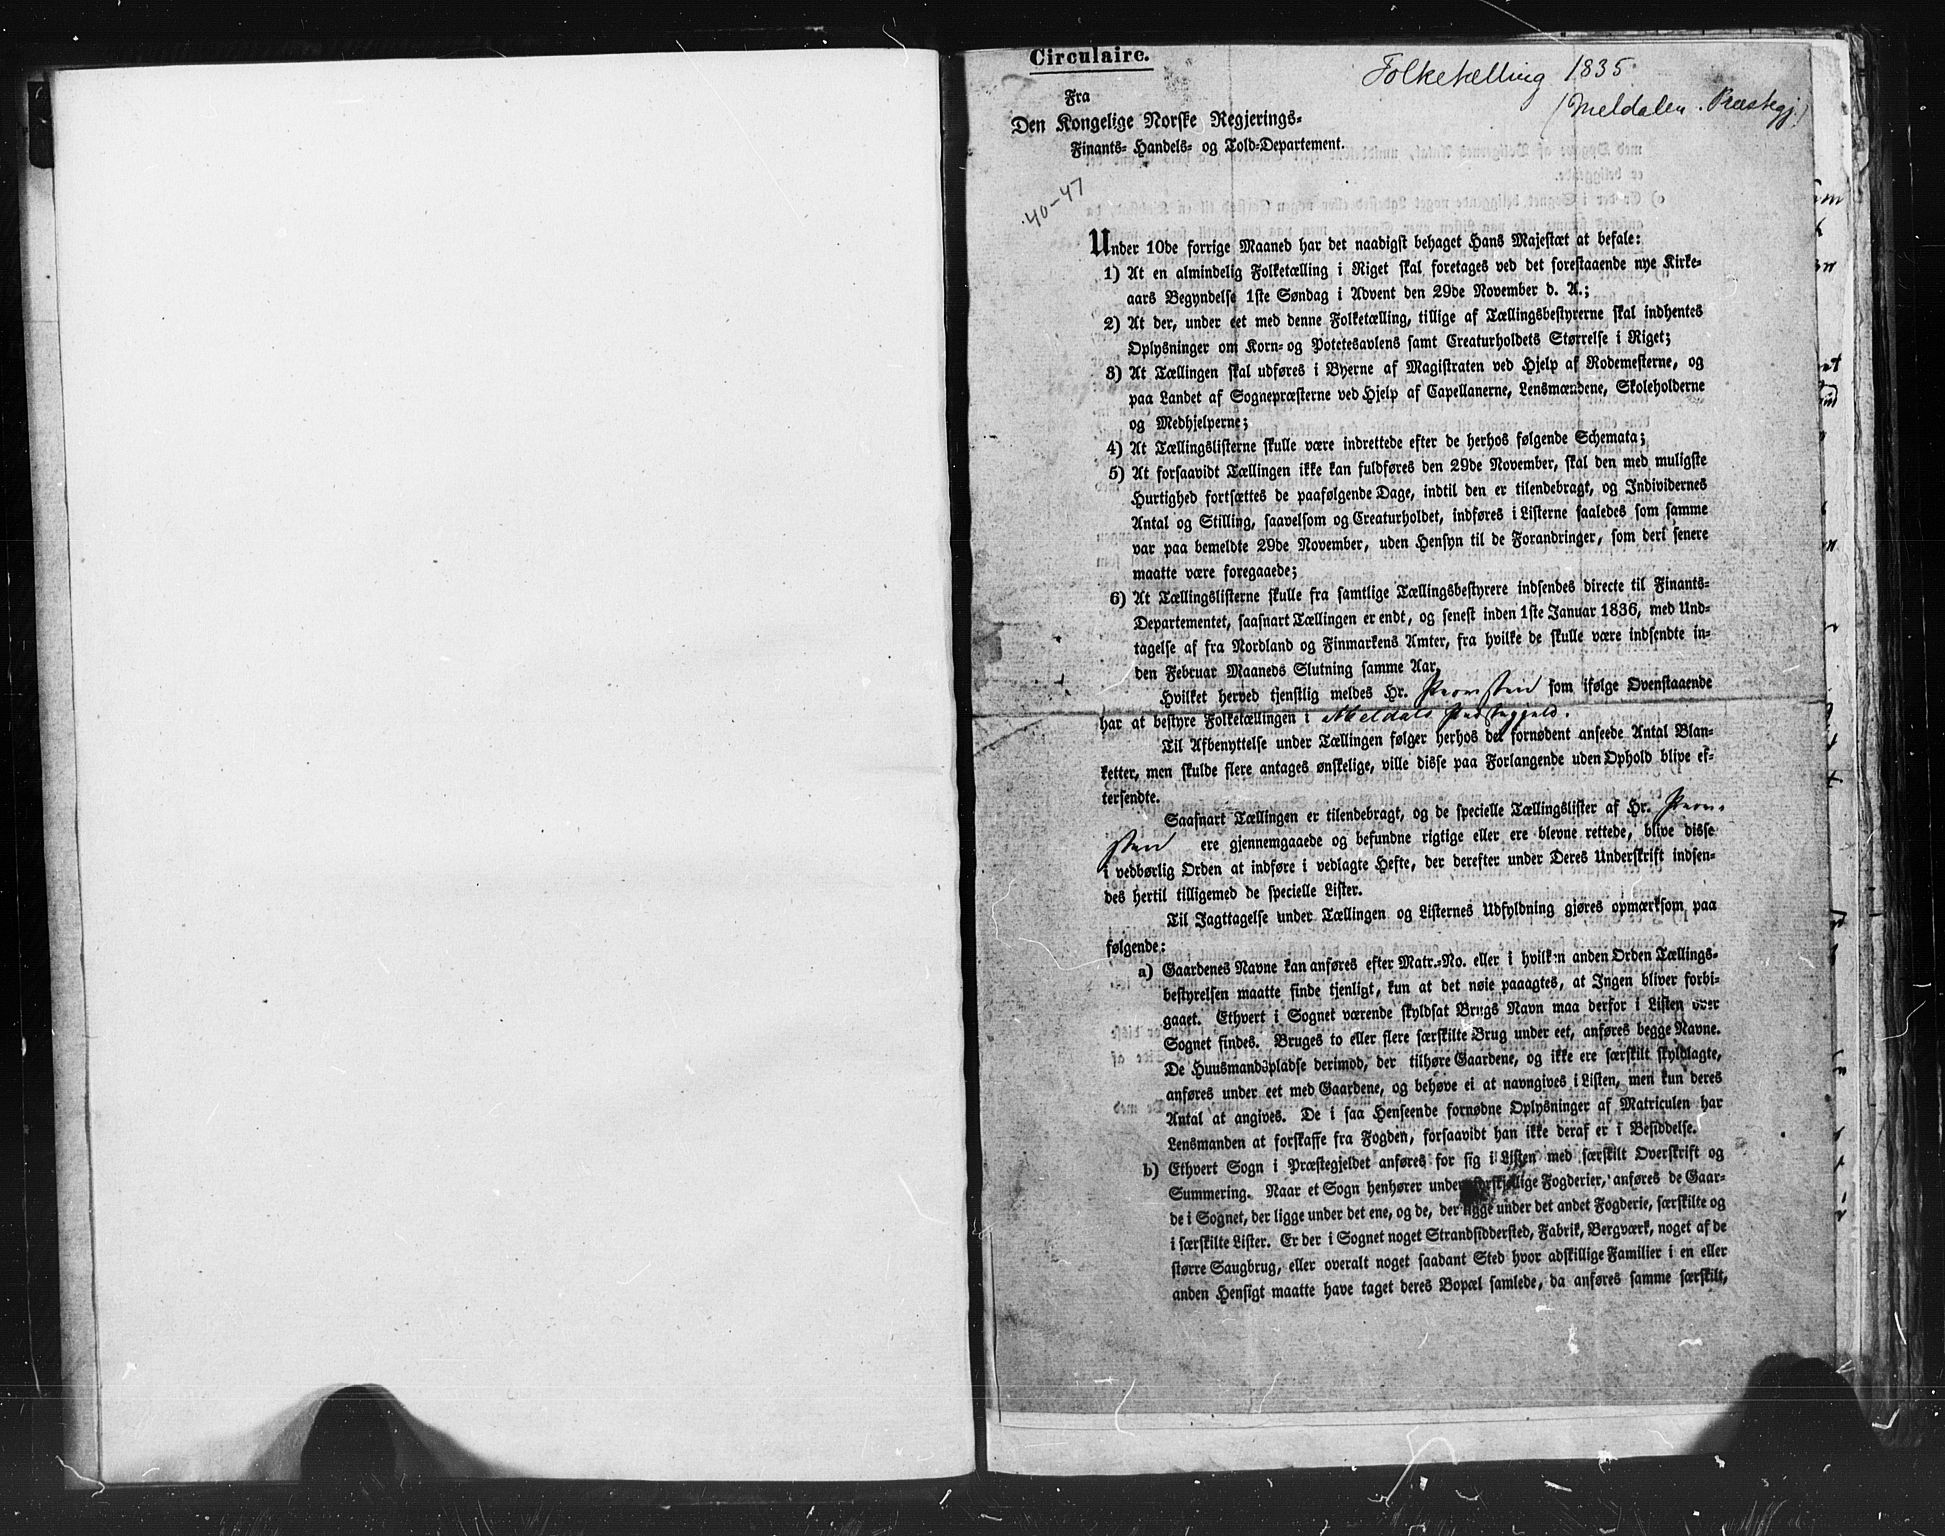 Circulaire.
Folketelling 1835
(Meldalen. Præstegj.)
Fra
Den Kongelige Norske Regjerings-
Finants- Handels- og Told-Departement.
40-47
Under 10de forrige Maaned har det naadigst behaget Hans Majestæt at befale:
1) At en almindelig Folketælling i Riget skal foretages ved det forestaaende nye Kirke-
aars Begyndelse 1ste Søndag i Advent den 29de November d. A.;
2) At der, under eet med denne Folketælling, tillige af Tællingsbestyrerne skal indhentes
Oplysninger om Korn- og Potetesavlens samt Creaturholdets Størrelse i Riget;
3) At Tællingen skal udføres i Byerne af Magistraten ved Hjelp af Rodemesterne, og
paa Landet af Sognepræsterne ved Hjelp af Capellanerne, Lensmændene, Skoleholderne
og Medhjelperne;
4) At Tællingslisterne skulle være indrettede efter de herhos følgende Schemata;
5) At forsaavidt Tællingen ikke kan fuldføres den 29de November, skal den med muligste
Hurtighed fortsættes de paafølgende Dage, indtil den er tilendebragt, og Individernes
Antal og Stilling, saavelsom og Creaturholdet, indføres i Listerne saaledes som samme
var paa bemeldte 29de November, uden Hensyn til de Forandringer, som deri senere
maatte være foregaaede;
6) At Tællingslisterne skulle fra samtlige Tællingsbestyrere indsendes directe til Finants-
Departementet, saasnart Tællingen er endt, og senest inden 1ste Januar 1836, med Und-
tagelse af fra Nordland og Finmarkens Amter, fra hvilke de skulle være indsendte in-
den Februar Maaneds Slutning samme Aar.
Hvilket herved tjenstlig meldes Hr. Provsten som ifølge Ovenstaaende
har at bestyre Folketællingen i Meldals Præstegjeld.
Til Afbenyttelse under Tællingen følger herhos det fornødent anseede Antal Blan-
ketter, men skulde flere antages ønskelige, ville disse paa Forlangende uden Ophold blive ef-
tersendte.
Saasnart Tællingen er tilendebragt, og de specielle Tællingslister af Hr. Prov-
sten ere gjennemgaaede og befundne rigtige eller ere blevne rettede, blive disse
i vedbørlig Orden at indføre i vedlagte Hefte, der derefter under Deres Underskrift indsen-
des hertil tilligemed de specielle Lister.
Til Iagttagelse under Tællingen og Listernes Udfyldning gjøres opmærksom paa
følgende:
a) Gaardenes Navne kan anføres efter Matr.-No. eller i hvilken anden Orden Tællings-
bestyrelsen maatte finde tjenligt, kun at det nøie paaagtes, at Ingen bliver forbi-
gaaet. Ethvert i Sognet værende skyldsat Brugs Navn maa derfor i Listen over
Sognet findes. Bruges to eller flere særskilte Brug under eet, anføres begge Navne.
De Huusmandspladse derimod, der tilhøre Gaardene, og ikke ere særskilt skyldlagte,
anføres under eet med Gaardene, og behøve ei at navngives i Listen, men kun deres
Antal at angives. De i saa Henseende fornødne Oplysninger af Matriculen har
Lensmanden at forskaffe fra Fogden, forsaavidt han ikke deraf er i Besiddelse.
b) Ethvert Sogn i Præstegjeldet anføres for sig i Listen med særskilt Overskrift og
Summering. Naar et Sogn henhører under forskjellige Fogderier, anføres de Gaar-
de i Sognet, der ligge under det ene, og de, der ligge under det andet Fogderie, særskilte og
i særskilte Lister. Er der i Sognet noget Strandsiddersted, Fabrik, Bergværk, noget af de
større Saugbrug, eller overalt noget saadant Sted hvor adskillige Familier i en eller
anden Hensigt maatte have taget deres Bopæl samlede, da anføres samme særskilt,